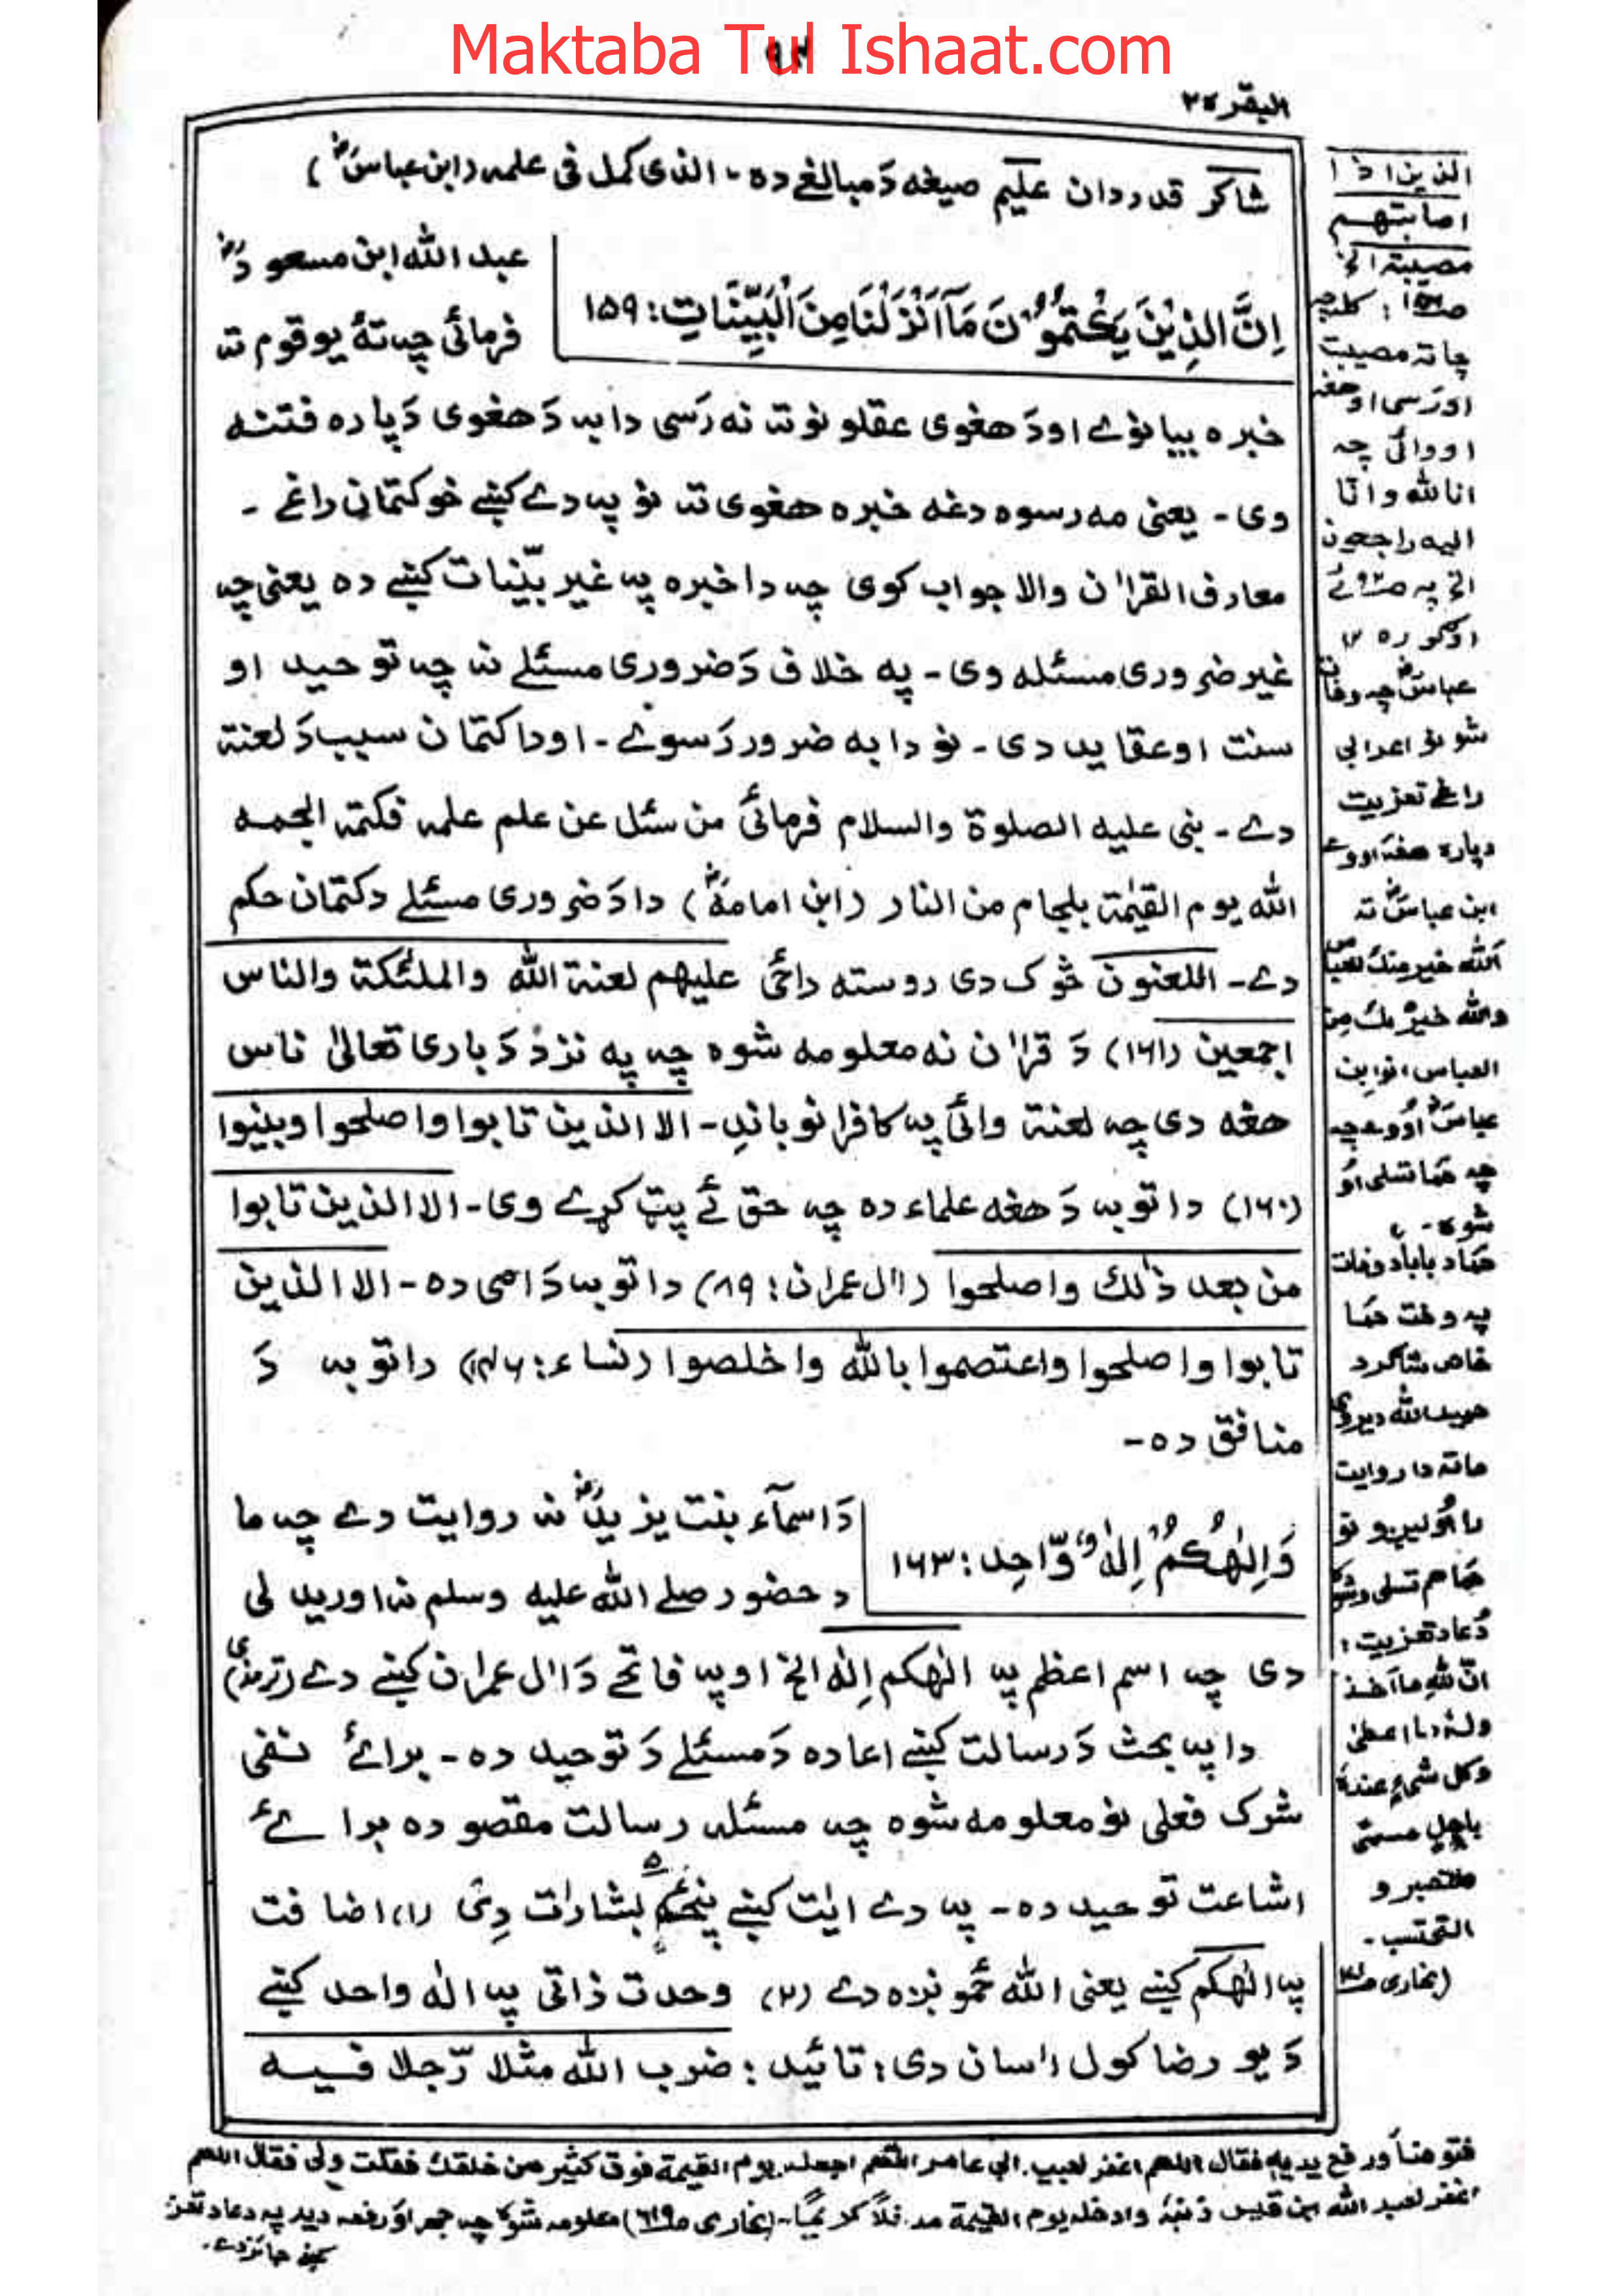 Maktaba Tul Ishaat.com
٩٢
البقرة ٢
شاکر قدردان علیم صیغه دَ مبالغے ده۔ الذی کمل فی علمه (ابن عباسؓ)
اِنَّ الذِیْنَ یَکْتُمُوْنَ مَآ اَنْزَلْنَا مِنَ الْبَیِّنَاتِ: ١٥٩
عبد الله ابن مسعودؓ
فرمائی چه تهٔ یو قوم ته
خبره بیانوے او دَ هغوی عقلونو ته نه رَسی دا به دَ هغوی دَپاره فتنه
وی۔ یعنی مه رسوه دغه خبره هغوی ته نو په دے کښے خو کتمان راغے۔
معارف القرآن والا جواب کوی چه دا خبره په غیر بیّنیات کښے ده یعنی چه
غیر ضروری مسئله وی۔ په خلاف دَ ضروری مسئلے نه چه توحید او
سنت او عقاید دی۔ نو دا به ضرور رَسوے۔ او دا کتمان سبب دَ لعنة
دے۔ بنی علیه الصلوة والسلام فرمائی من سئل عن علم علمه فکتمه الجمه
الله یوم القیٰمة بلجام من النار (ابن امامةؓ) دا دَ ضروری مسئلے دکتمان حکم
دے۔ اللعنون څوک دی روسته راځی علیهم لعنة الله والملئکة والناس
اجمعین (١٦١) دَ قرآن نه معلومه شوه چه په نزد دَ باری تعالیٰ ناس
هغه دی چه لعنة وائی په کافرانو باندِ۔ الا الذین تابوا واصلحوا وبینوا
(١٦٠) دا توبه دَ هغه علماء ده چه حق ئے پټ کړے وی۔ الا الذین تابوا
من بعد ذٰلک واصلحوا (اٰل عمران: ٨٩) دا توبه دَ امی ده۔ الا الذین
تابوا واصلحوا واعتصموا بالله واخلصوا (نساء: ١٤٦) دا توبه دَ
منافق ده۔
وَاِلٰهُکُمْ اِلٰهٌ وَّاحِد: ١٦٣
دَ اسمآء بنت یزیدؓ نه روایت دے چه ما
د حضور صلے الله علیه وسلم نه اوریدلی
دی چه اسم اعظم په الٰهکم اِلٰه الخ او په فاتحے دَ اٰل عمران کښے دے (ترمذی)
دا په بحث دَ رسالت کښے اعاده دَ مسئلے دَ توحید ده۔ برائے نفی
شرک فعلی نو معلومه شوه چه مسئله رسالت مقصوده برائے
اشاعت توحید ده۔ په دے ایٰت کښے پنځهٔ بشارات دِی (١) اضافت
په الٰهکم کښے یعنی الله څمونږه دے (٢) وحدت ذاتی په اله واحد کښے
دَ یو رضا کول اٰسان دی؛ تائید: ضرب الله مثلا رّجلا فیه
الذین اذا
اصابتهم
مصیبة الخ
چاته مصیبت
اورَسی او هغه
او وائی چه
انا لله وانا
الیه راجعون
عباسؓ چه وفات
شو نو اعرابی
راغے تعزیت
دپاره هغهٔ اووے
ابن عباسؓ ته
اَلله خیر منک للعباس
والله خیرٌ بک من
العباس، نو ابن
عباسؓ اووے چه
چه ځما تسلی اوَ
شوه۔
ځما د باباد وفات
په وخت ځما
خاص شاګرد
ماته دا روایت
ځما هم تسلی وشوه
دُعاد تعزیت:
انّ للهِ ما اَخذ
ولهٔ ما اعطیٰ
وکل شیءٍ عندهٗ
باجلٍ مسمیّ
فلتصبر و
التحتسب۔
فتوضأ ورفع یدیه فقال اللهم اغفر لعبید ابی عامر اللّٰهم اجعله یوم القیمة فوق کثیر من خلقک فقلت ولی فقال اللهم
اغفر لعبد الله ابن قیس ذنبهٗ وادخله یوم القیمة مدخلاً کریمًا۔ (بخاری ص٦١٩) معلومه شوه چه جهر او رفعه دید په دعاد تعزیت
کښے جائز دے۔